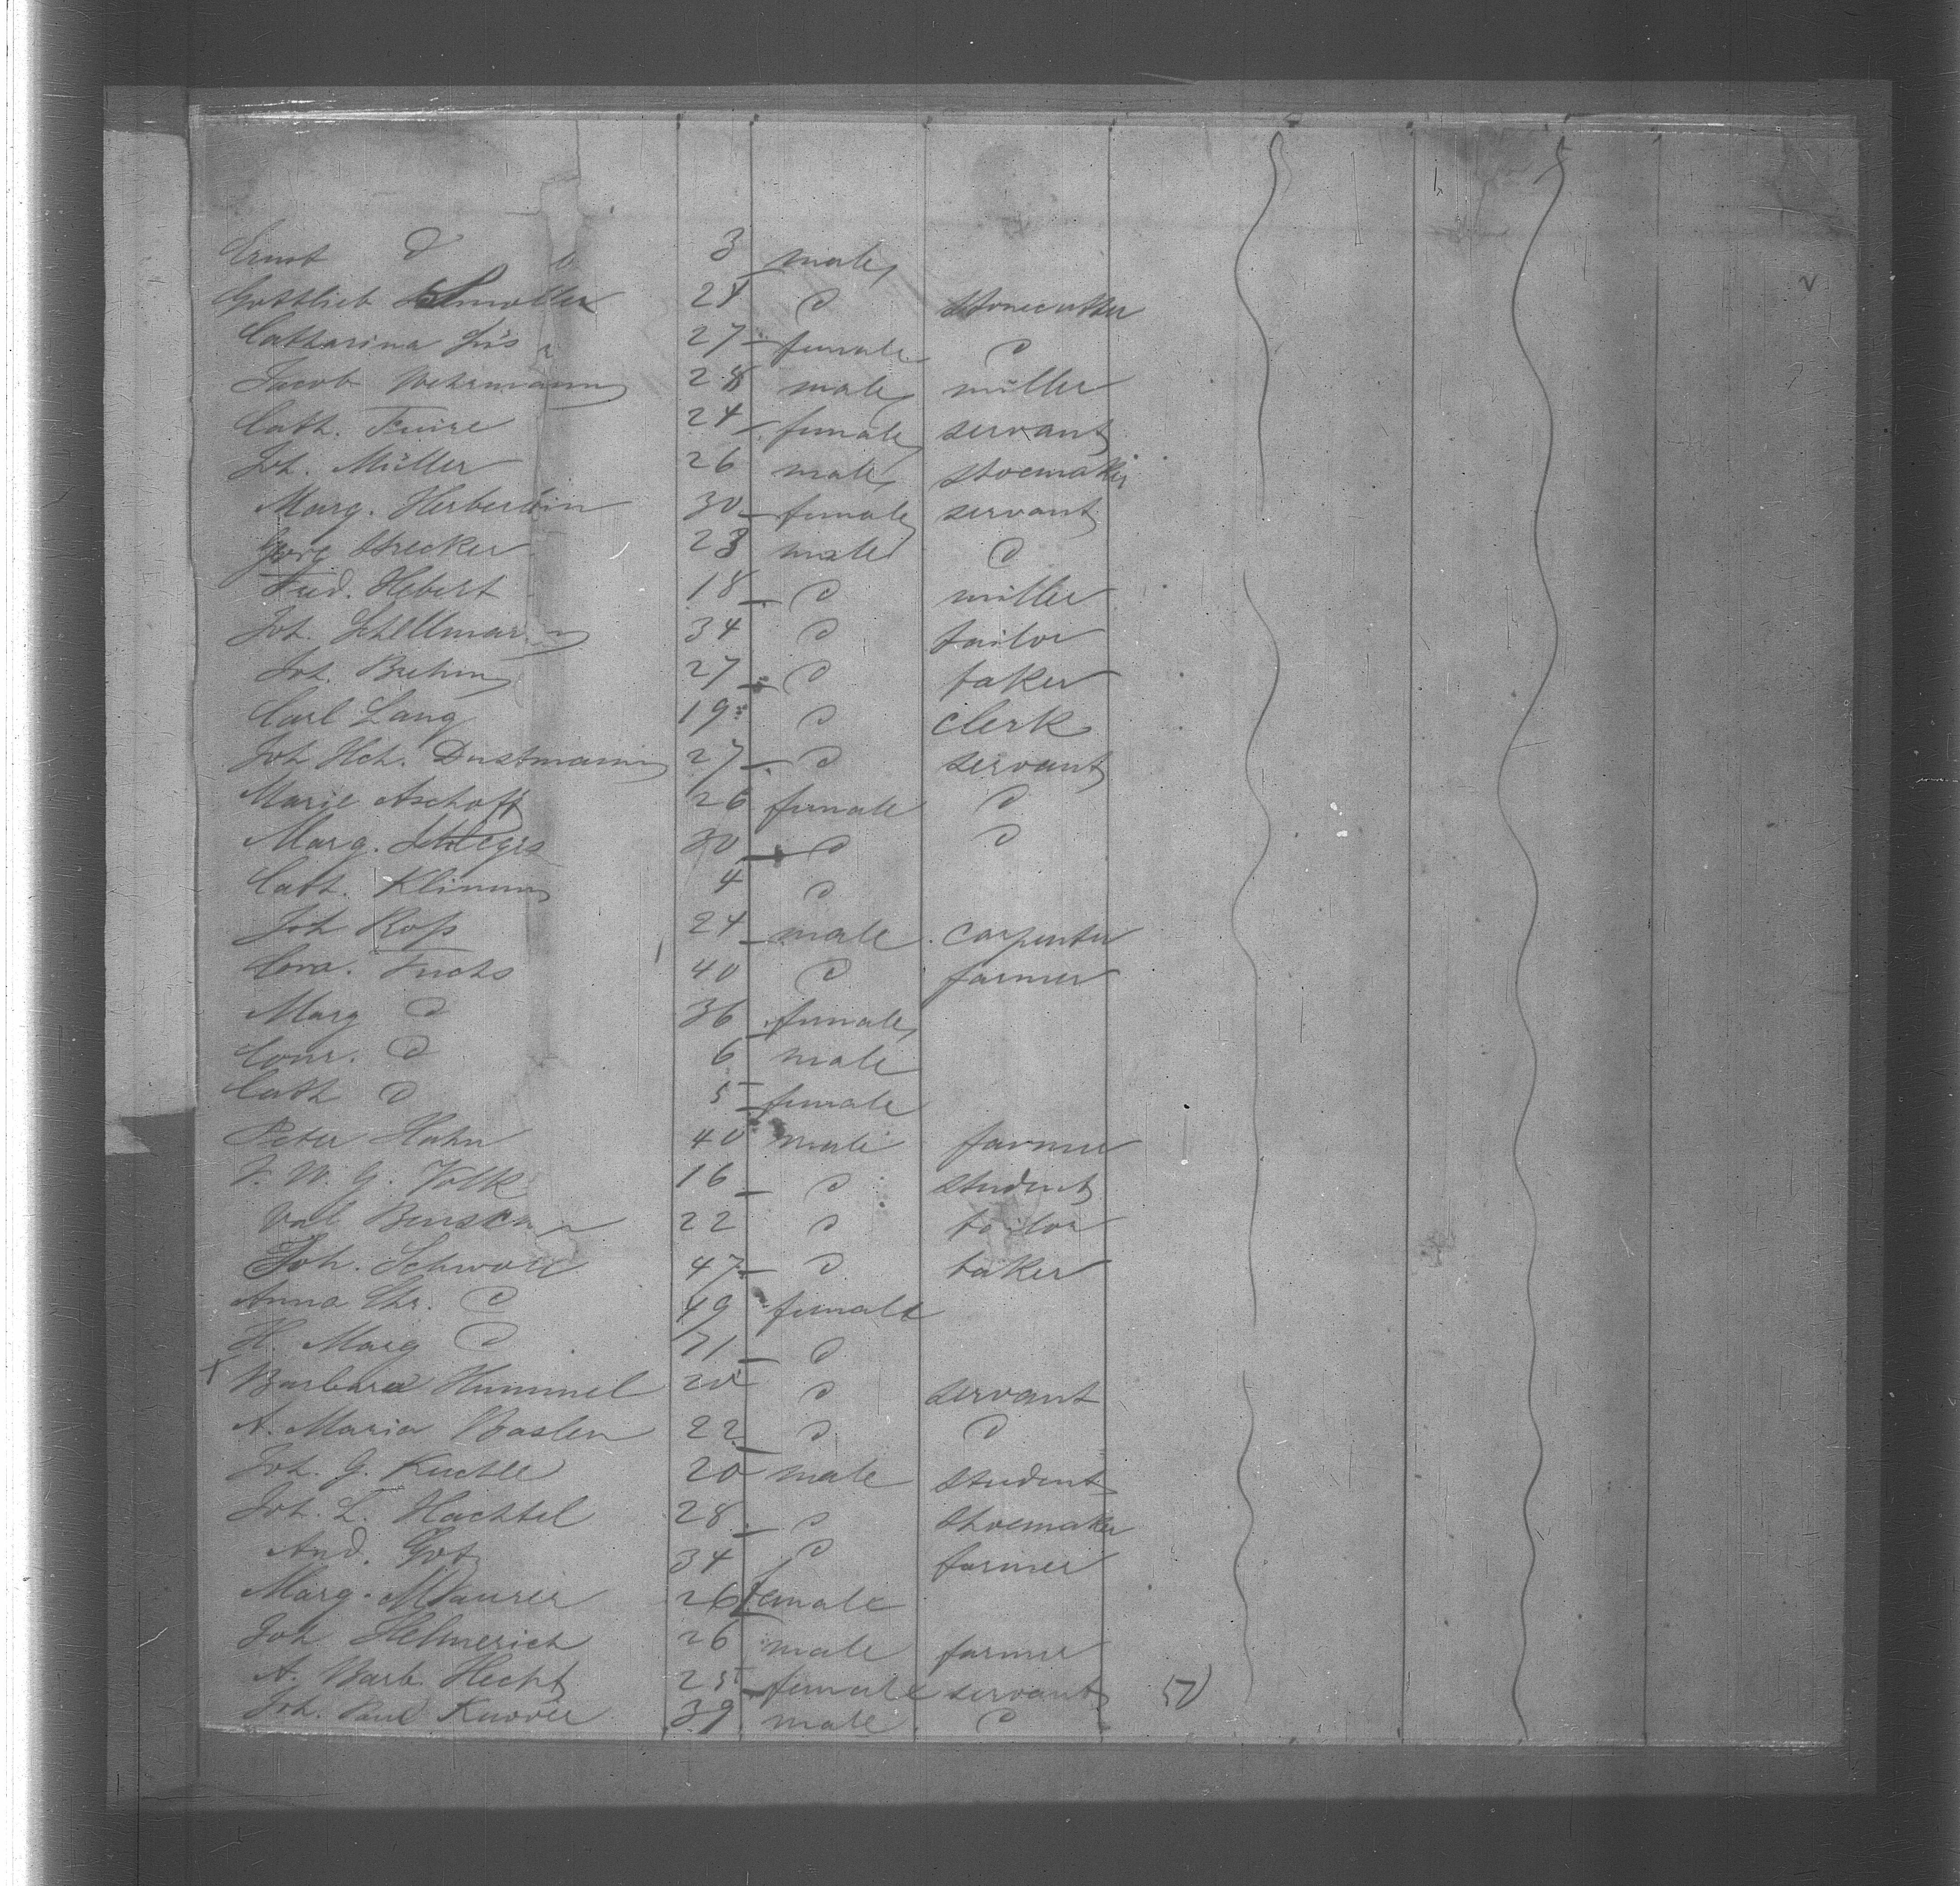 Ernst d 3 male
Gottlieb 24 d stonecutter
Catharina 27 female d
Jacob Wehrmann 28 male miller
Cath. 24 female servant
Joh. Müller 26 male shoemaker
Marg. 30 female servant
Georg Strecker 23 male d
Fred. Hebert 18 d miller
Joh. Schellmann 34 d tailor
Joh. Brehm 27 d baker
Carl Lang 19 d clerk
Joh Hch. Dustmann 27 d servant
Marie Aschoff 26 female d
Marg. 30 d d
Cath. Klimm 4 d
Joh Roß 24 male carpenter
Conr. Fuchs 40 d farmer
Marg d 36 female
Conr. d 6 male
Cath d 5 female
Peter Hahn 40 male farmer
F. W. G. Volk 16 d student
Val 22 d tailor
Joh. 47 d baker
Anna Chr. d 49 female
H. Marg d 71 d
x Barbara Hummel 20 d servant
A. Maria Baslen 22 d d
Joh. G. 20 male student
Joh. L. Hachtel 28 d shoemaker
And. Got 34 d farmer
Marg. Maurer 26 female
Joh Helmerich 26 male farmer
A. Barb. Hecht 25 female servant
Joh. Paul 39 male d